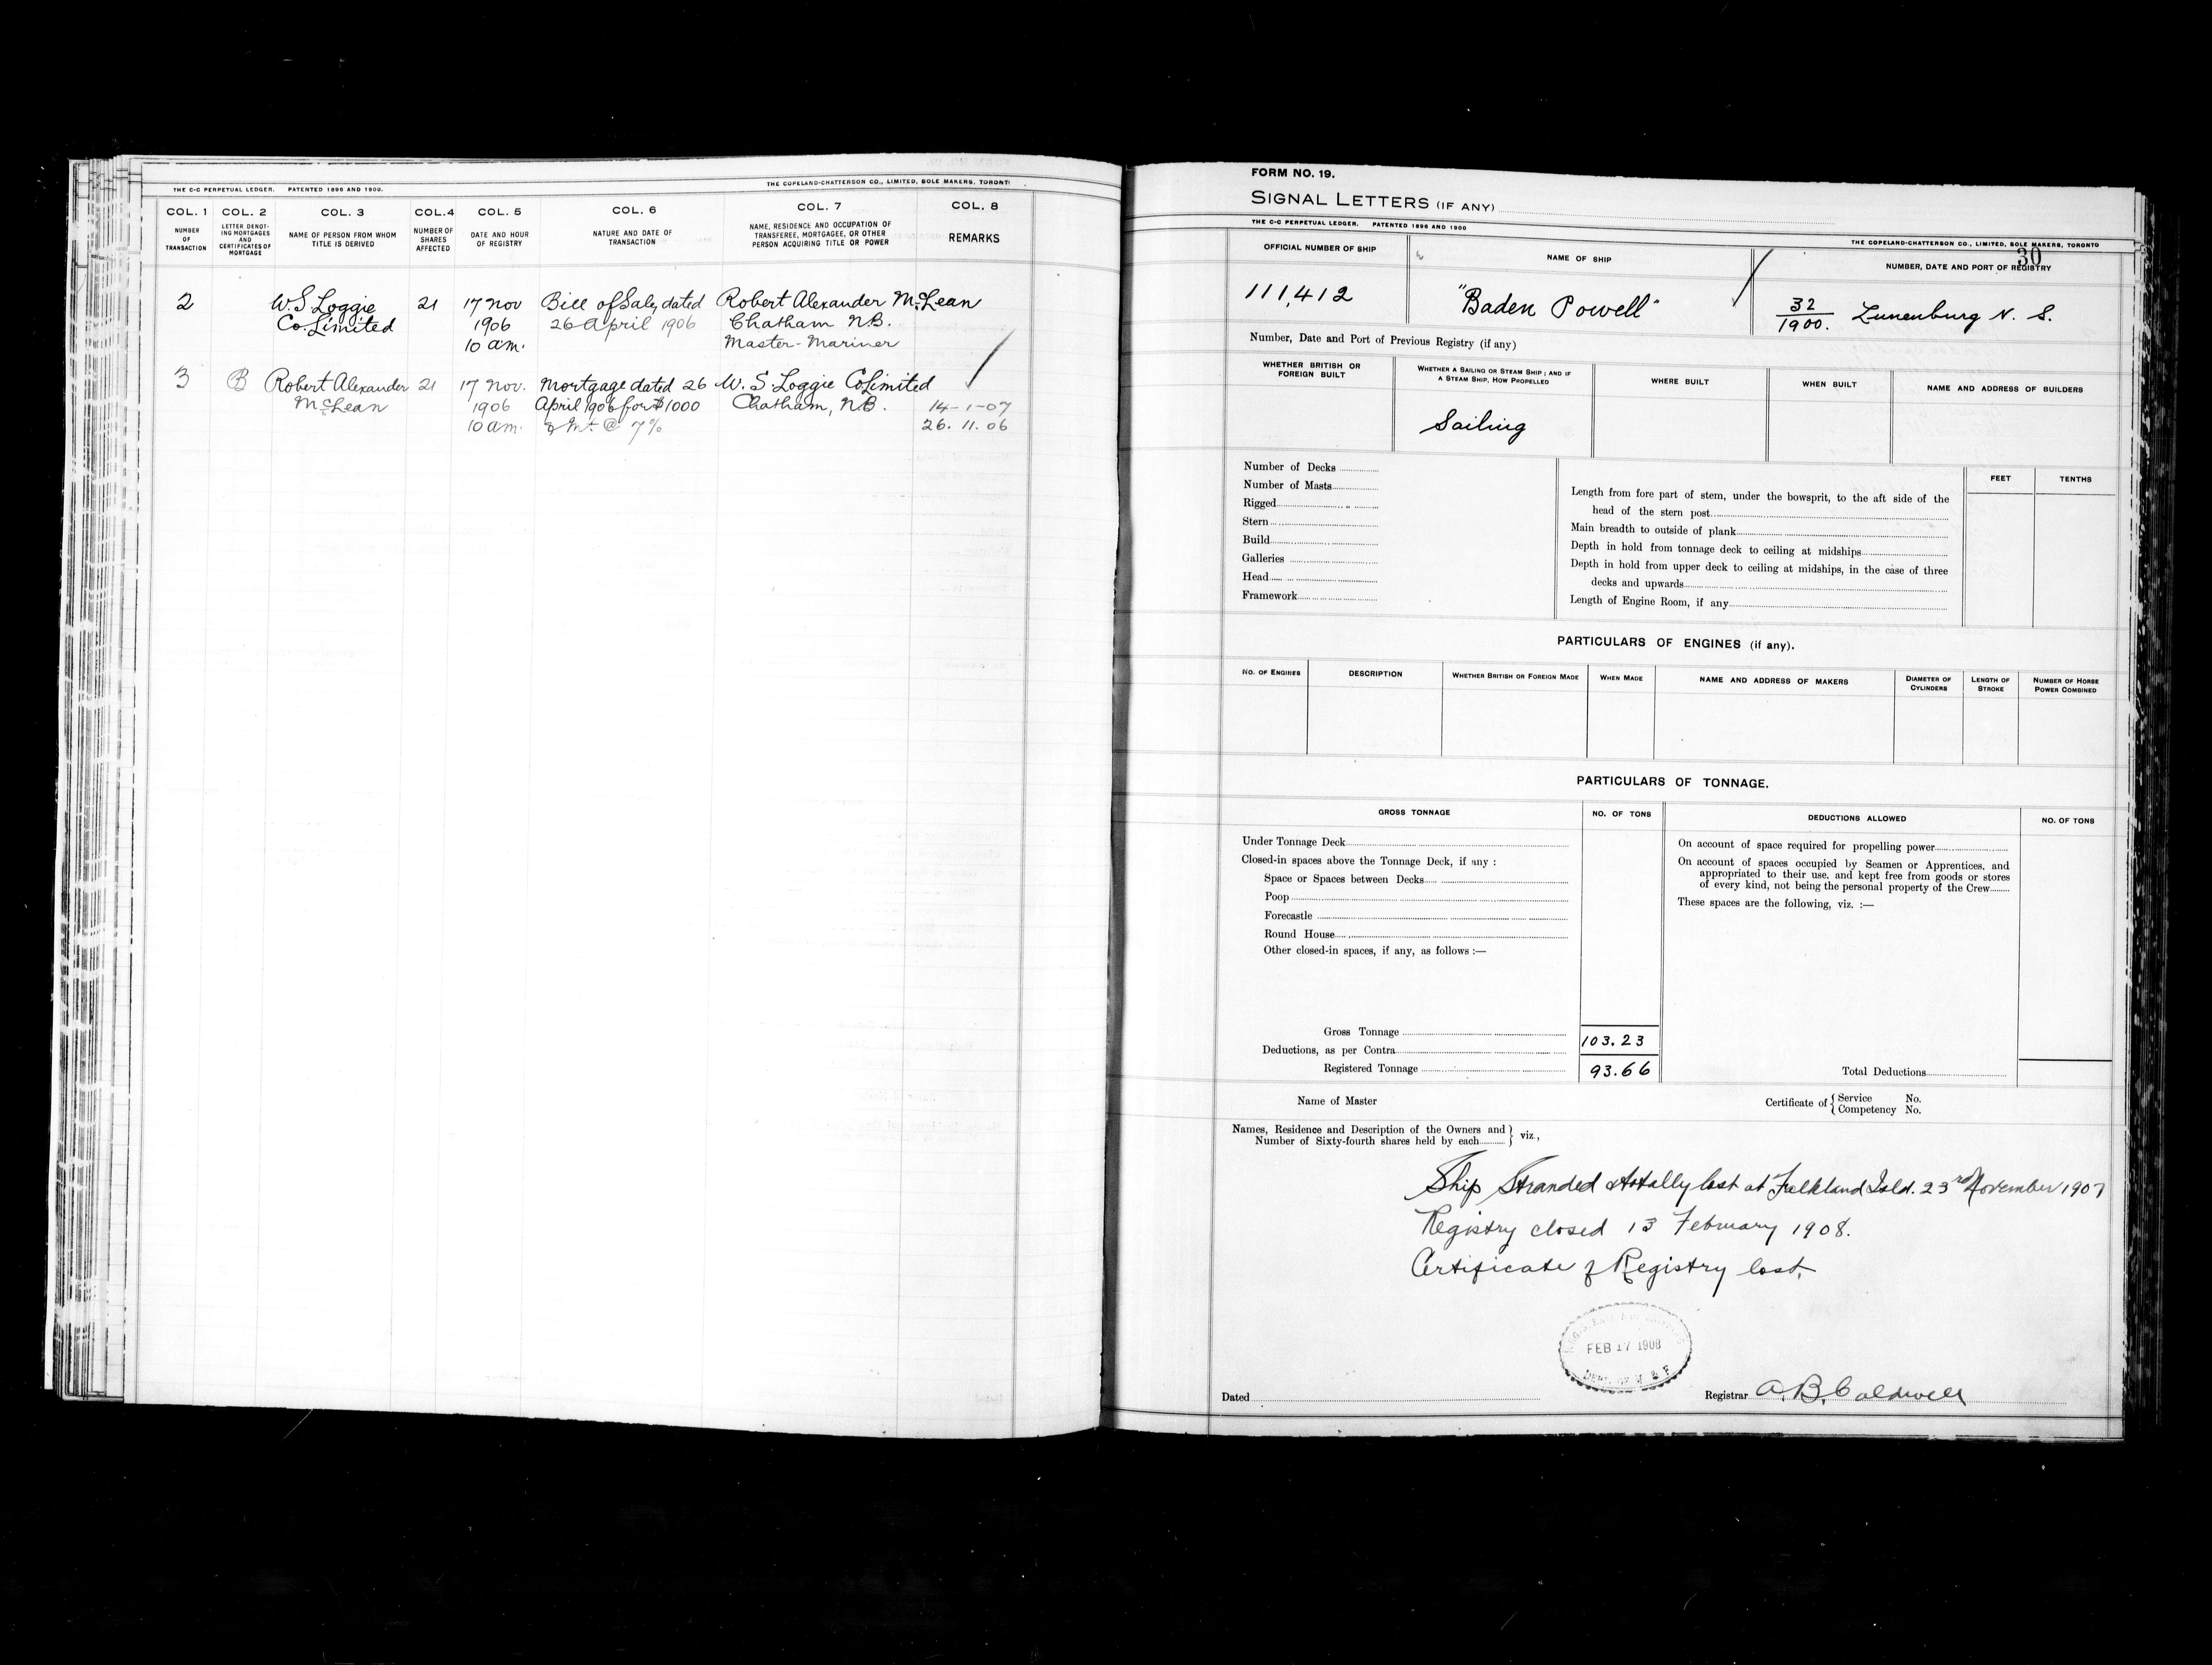 THE C-C PERPETUAL LEDGER. PATENTED 1896 AND 1900.
THE COPELAND-CHATTERSON CO., LIMITED, SOLE MAKERS, TORONT
COL. 1 COL. 2 COL. 3 COL. 4 COL. 5 COL. 6 COL. 7 COL. 8
NUMBER OF TRANSACTION
LETTER DENOT-ING MORTGAGES AND CERTIFICATES OF MORTGAGE
NAME OF PERSON FROM WHOM TITLE IS DERIVED
NUMBER OF SHARES AFFECTED
DATE AND HOUR OF REGISTRY
NATURE AND DATE OF TRANSACTION
NAME, RESIDENCE AND OCCUPATION OF TRANSFEREE, MORTGAGEE, OR OTHER PERSON ACQUIRING TITLE OR POWER
REMARKS
2 W.S Loggie 21 17 Nov Bill of Sale, dated Robert Alexander McLean
Co. Limited 1906 26 April 1906 Chatham N.B.
10 a.m. Master-Mariner
3 B Robert Alexander 21 17 Nov. Mortgage dated 26 W. S Loggie Co Limited
McLean 1906 April 1906 for $1000 Chatham, N.B. 14-1-07
10 am. & Int @ 7% 26. 11. 06
FORM NO. 19.
SIGNAL LETTERS (IF ANY)
THE C-C PERPETUAL LEDGER. PATENTED 1896 AND 1900
THE COPELAND-CHATTERSON CO., LIMITED, SOLE MAKERS, TORONTO
30
OFFICIAL NUMBER OF SHIP
NAME OF SHIP
NUMBER, DATE AND PORT OF REGISTRY
111,412 "Baden Powell" 32/1900. Lunenburg N. S.
Number, Date and Port of Previous Registry (if any)
WHETHER BRITISH OR FOREIGN BUILT
WHETHER A SAILING OR STEAM SHIP; AND IF A STEAM SHIP, HOW PROPELLED
WHERE BUILT
WHEN BUILT
NAME AND ADDRESS OF BUILDERS
Sailing
Number of Decks
Number of Masts
Rigged
Stern
Build
Galleries
Head
Framework
FEET TENTHS
Length from fore part of stem, under the bowsprit, to the aft side of the
head of the stern post
Main breadth to outside of plank
Depth in hold from tonnage deck to ceiling at midships
Depth in hold from upper deck to ceiling at midships, in the case of three
decks and upwards
Length of Engine Room, if any
PARTICULARS OF ENGINES (if any).
NO. OF ENGINES
DESCRIPTION
WHETHER BRITISH OR FOREIGN MADE
WHEN MADE
NAME AND ADDRESS OF MAKERS
DIAMETER OF CYLINDERS
LENGTH OF STROKE
NUMBER OF HORSE POWER COMBINED
PARTICULARS OF TONNAGE.
GROSS TONNAGE
NO. OF TONS
DEDUCTIONS ALLOWED
NO. OF TONS
Under Tonnage Deck
Closed-in spaces above the Tonnage Deck, if any :
Space or Spaces between Decks
Poop
Forecastle
Round House
Other closed-in spaces, if any, as follows :—
On account of space required for propelling power
On account of spaces occupied by Seamen or Apprentices, and
appropriated to their use, and kept free from goods or stores
of every kind, not being the personal property of the Crew
These spaces are the following, viz. :—
Gross Tonnage 103.23
Deductions, as per Contra
Registered Tonnage 93.66
Total Deductions
Name of Master
Certificate of { Service No.
Competency No.
Names, Residence and Description of the Owners and
Number of Sixty-fourth shares held by each } viz.,
Ship Stranded & totally lost at Falkland Isld. 23rd November 1907
Registry closed 13 February 1908.
Certificate of Registry lost.
FEB 17 1908
DEPT. OF M & F
Dated
Registrar A. B. Caldwell